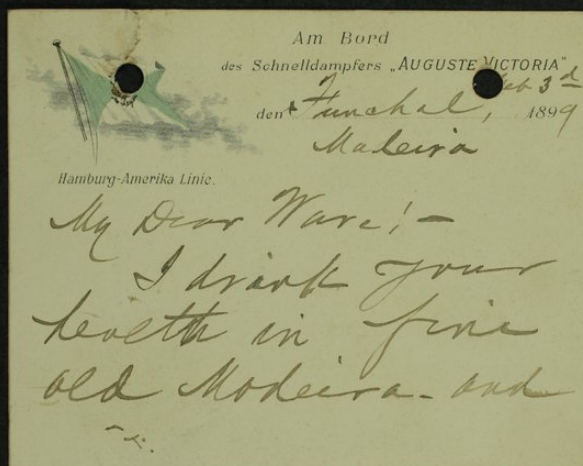 Am Bord
des Schnelldampfers „AUGUSTE VICTORIA"
Feb 3d
den Funchal, 1899
Madeira
Hamburg-Amerika Linie.
My Dear Ware! –
I drank your
health in fine
old Madeira – and